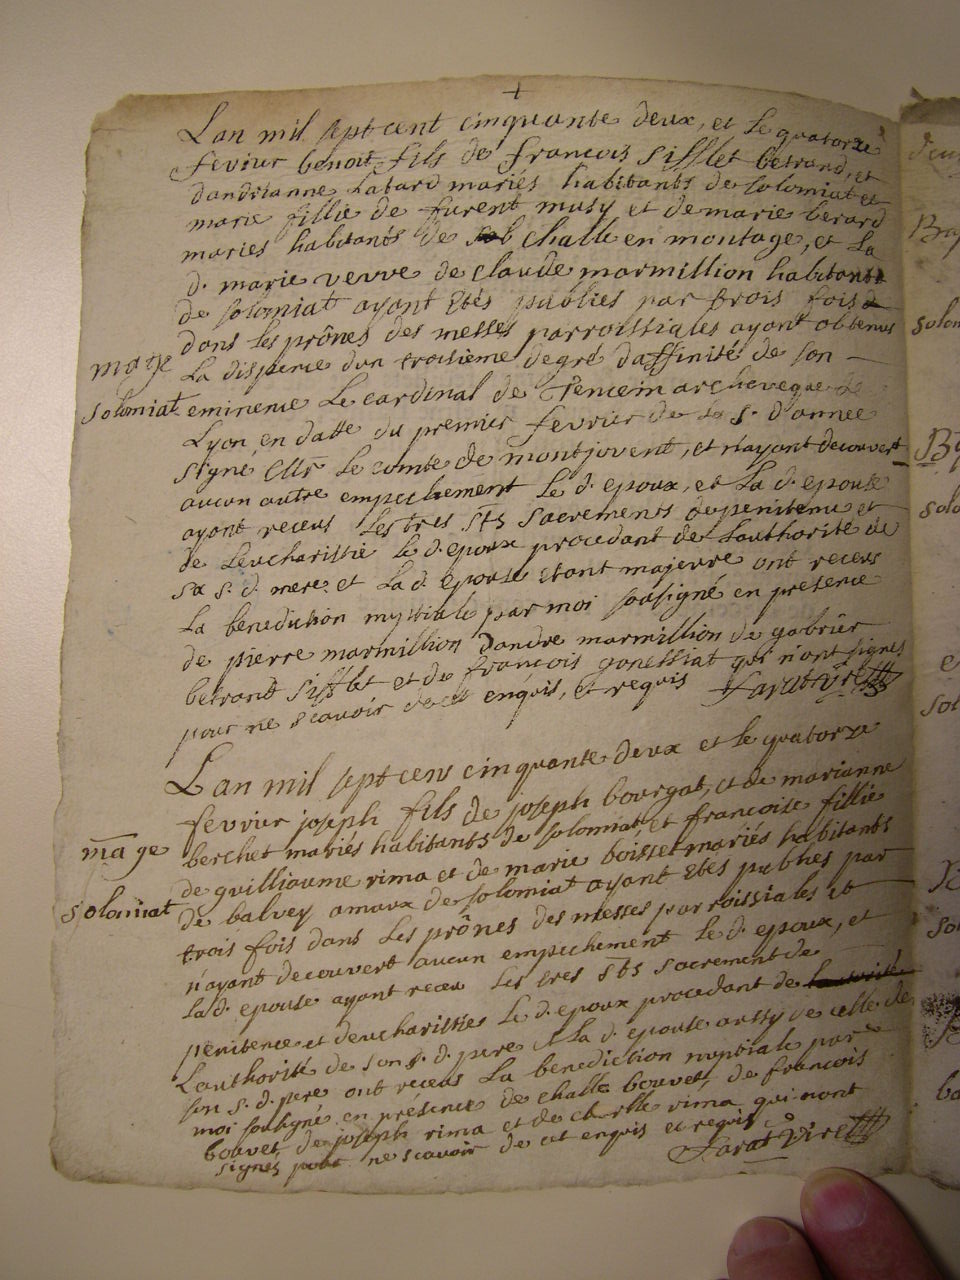 +
Lan mil sept cent cinquante deux, et le quatorze
fevrier benoit fils de francois Sifflet betrand, et
dandrianne Latard mariés habitants de solomiat et
marie fillie de furent musy et de marie berard
mariés habitants de challe en montage, et La
d. marie veuve de claude marmillion habitante
de solomiat ayant Etés publiés par trois fois
dans Les prônes des messes parroissiales ayant obtenus
mage La dispense dun troisieme degré daffinité de son
solomiat eminence Le cardinal de Tencin archeveque de
Lyon en datte du premier fevrier de La s. d. année
signé Le comte de montjouvent, et n'ayant decouvert
aucun autre empechement Le d. epoux, et La d. epouse
ayant receus Les tres sts sacrements de penitence et
de Leucharistie Le d. epoux procedant de Lauthorité de
sa s. d. mere et La d. epouse etant majeure ont receus
La benediction nuptiale par moi sousigné en presence
de pierre marmillion Dandre marmillion de gabriel
betrand Sifflet et de francois gonessiat qui n'ont signes
pour ne scavoir de ce enquis, et requis Farat Vire
Lan mil sept cens cinquante deux et le quatorze
fevrier joseph fils de joseph bourgat, et de marianne
mage berchet mariés habitants de solomiat, et francoise fillie
de guilliaume rima et de marie boisset mariés habitants
solomiat de balvey amaux de solomiat ayant Etes publies par
trois fois dans Les prônes des messes parroissiales et
n'ayant decouvert aucun empechement Le d. epoux, et
La d. epouse ayant receu Les tres sts sacrement de
penitence et deucharistie Le d. epoux procedant de
Lauthorité de son s. d. pere et La d. epouse aussy de celle de
son s. d. pere ont receus La benediction nuptiale par
moi sousigné en présence de challe bouvet, de francois
bouvet, de joseph rima et de charlle rima qui nont
signés pour ne scavoir de ce enquis et requis Farat Vire